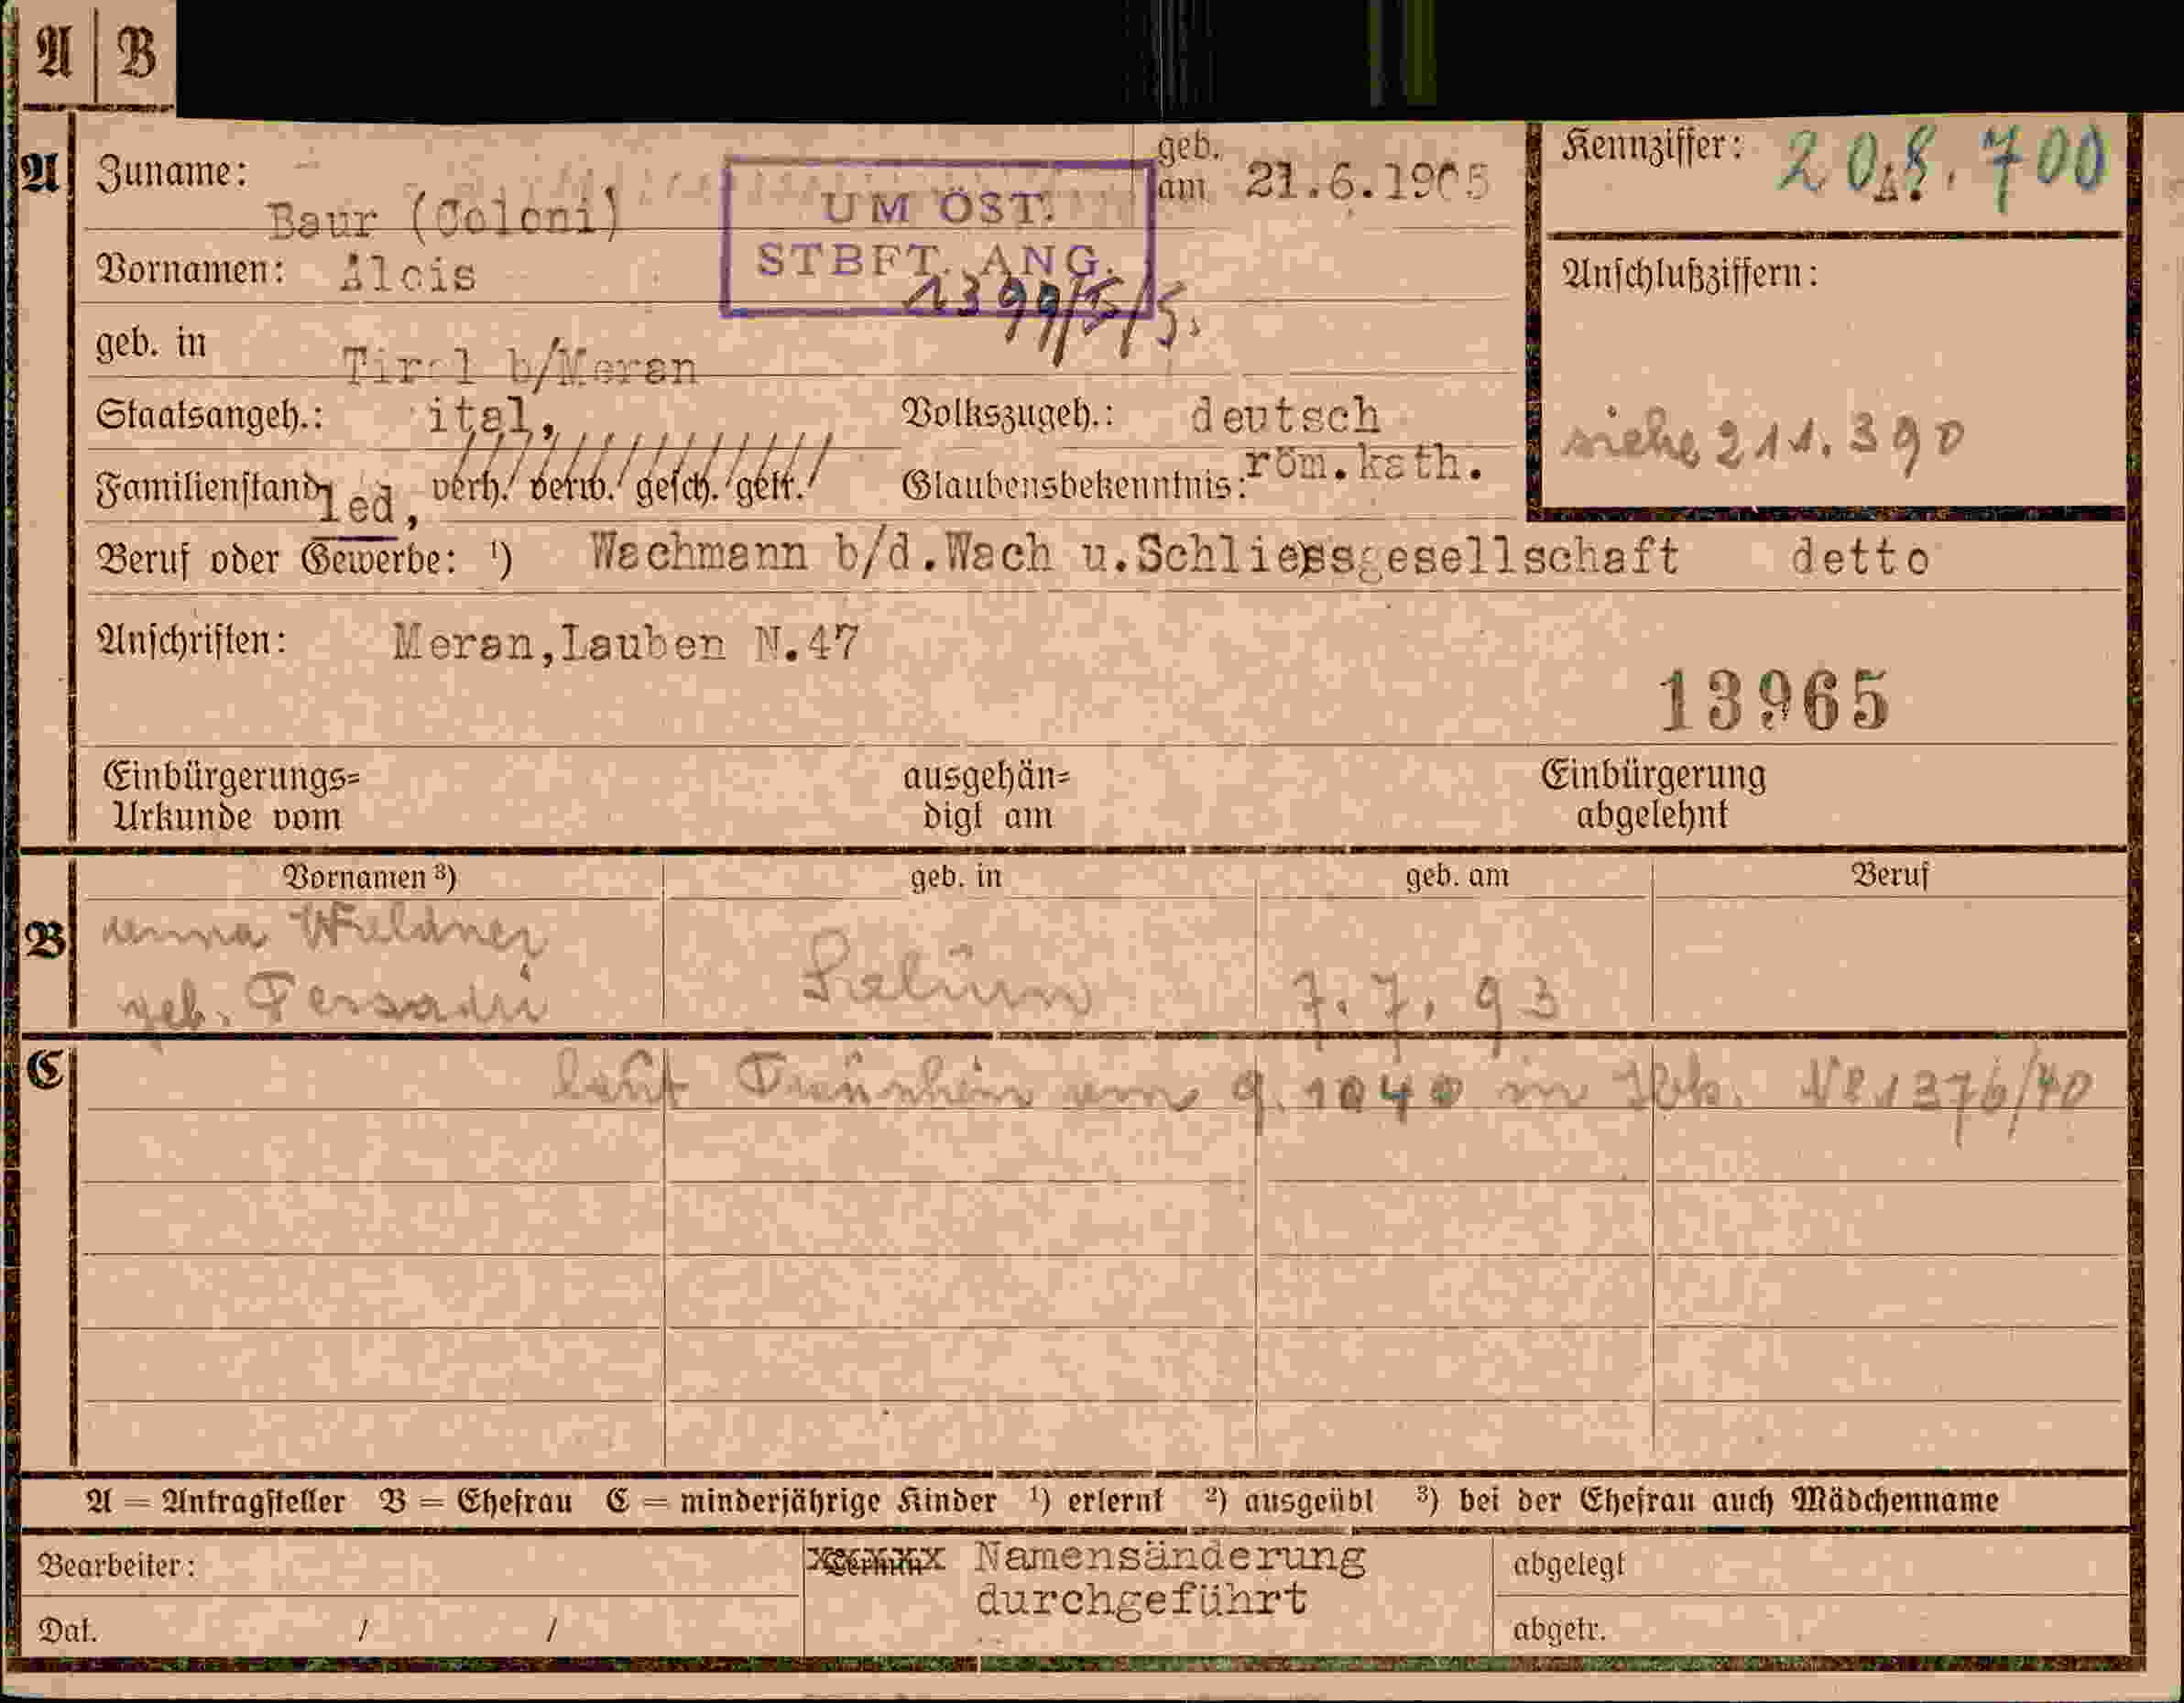 A | B
A
Zuname: Baur (Coloni)
geb. am 21.6.1905
Kennziffer: 208.700
UM ÖST.
STBFT. ANG.
1399/5/5.
Vornamen: Alois
Anschlußziffern:
geb. in Tirol b/Meran
Staatsangeh.: ital,
Volkszugeh.: deutsch
siehe 211.390
Familienstand led, verh. verw. gesch. getr.
Glaubensbekenntnis: röm.kath.
Beruf oder Gewerbe: ¹) Wachmann b/d.Wach u.Schliessgesellschaft detto
Anschriften: Meran,Lauben N.47
13965
Einbürgerungs=
Urkunde vom
ausgehän=
digt am
Einbürgerung
abgelehnt
Vornamen ³) geb. in geb. am Beruf
B
geb. 7.7.93
C
laut 1940 in N 81376/40
A = Antragsteller B = Ehefrau C = minderjährige Kinder ¹) erlernt ²) ausgeübt ³) bei der Ehefrau auch Mädchenname
Bearbeiter:
Namensänderung
durchgeführt
abgelegt
Dat. / /
abgetr.